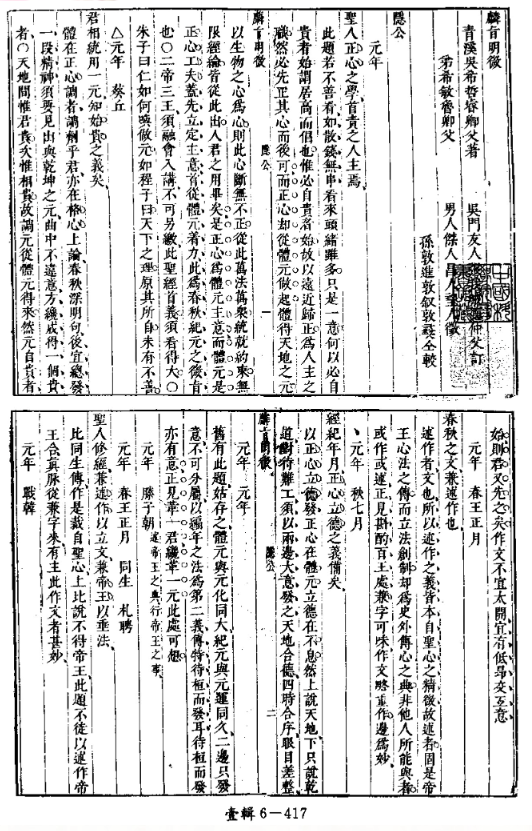 麟旨明微
青溪吳希哲睿卿父著
弟希敏魯卿父
吳門友人
仲父訂
男人傑人昌人望人徵
孫敦進敦叙敦彝仝較
隱公
元年
聖人正心之學首責之人主焉
此題若不善看如散錢無串看來頭緒雖多只是一意何以必自
貴者始謂居高而倡也惟必自貴者始故以遠近歸正為人主之
職然必先正其心而後可而正心却從體元做起體得天地之元
麟旨明微
隱公
一
以生物之心為心則此心斷無不正從此萬法萬衆統就約束無
限經綸皆從此出人君之用畢矣是正心為體元主意而體元是
正心工夫蓋先立定主意者從體元者力此為春秋紀元之後首
也○二帝三王須融會入講不可另繳此聖經首義須看得大○
朱子曰仁如何喚做元如程子曰天下之理原其所自未有不善
△元年 葵丘
君相統用一元知始貴之義矣
體在正心調者調劑乎君亦在格心上論春秋深明句後宜總發
一段精神須要見出與乾坤之元曲中不違意方纔成得一個貴
者○天地間惟君貴次惟相貴故調元從體元得來然元自貴者
始則君又先之矣作文不宜太開宜有低昂交互意
元年 春王正月
春秋之文兼述作也
述作者文也所以述作之義皆本自聖心之精微故述者固是帝
王心法之傳而立法創制却為史外傳心之典非他人所能與者
或作或述正見斟酌百王處兼字可味作文略重作邊為妙
丶元年 秋七月
經紀年月正心立德之義備矣
以正心立德發正心在體元立德在不息然上說天地下只說乾
道對待難工須以兩邊大意發之天地合德四時合序眼目差整
麟旨明微
隱公
二
元年 元年
舊有此題姑存之體元與元化同大紀元與元運同久二邊只發
意不可分屬以編年之法為第二義傳特待桓而發耳待桓而發
亦有意正見革一君纔革一元此處可想
元年 滕子朝 述帝王之典行帝王之事
元年 春王正月 同生 札聘
聖人修經兼述作以立文兼帝王以垂法
比同生傳作是裁自聖心上比說不得帝王此題不徒以述作帝
王合真脉從兼字來有主此作文者甚妙
元年 戰韓
壹輯6—417